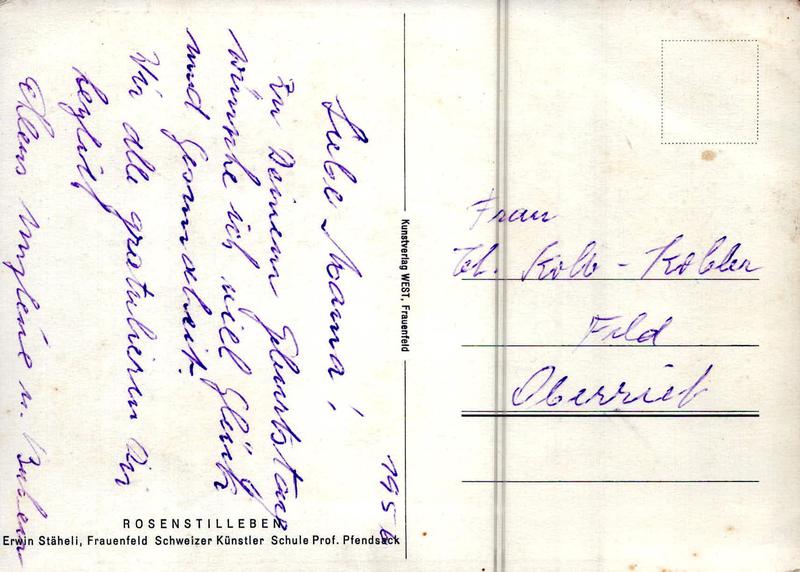 1956
Liebe Mama!
Zu Deinem Geburtstage
wünsche ich viel Glück
und Gesundheit.
Wir alle gratulieren Dir
herzlich
u. Buben
Frau
Kolb - Kobler
Feld
Oberriet
Kunstverlag WEST, Frauenfeld
ROSENSTILLEBEN
Erwin Stäheli, Frauenfeld Schweizer Künstler Schule Prof. Pfendsack